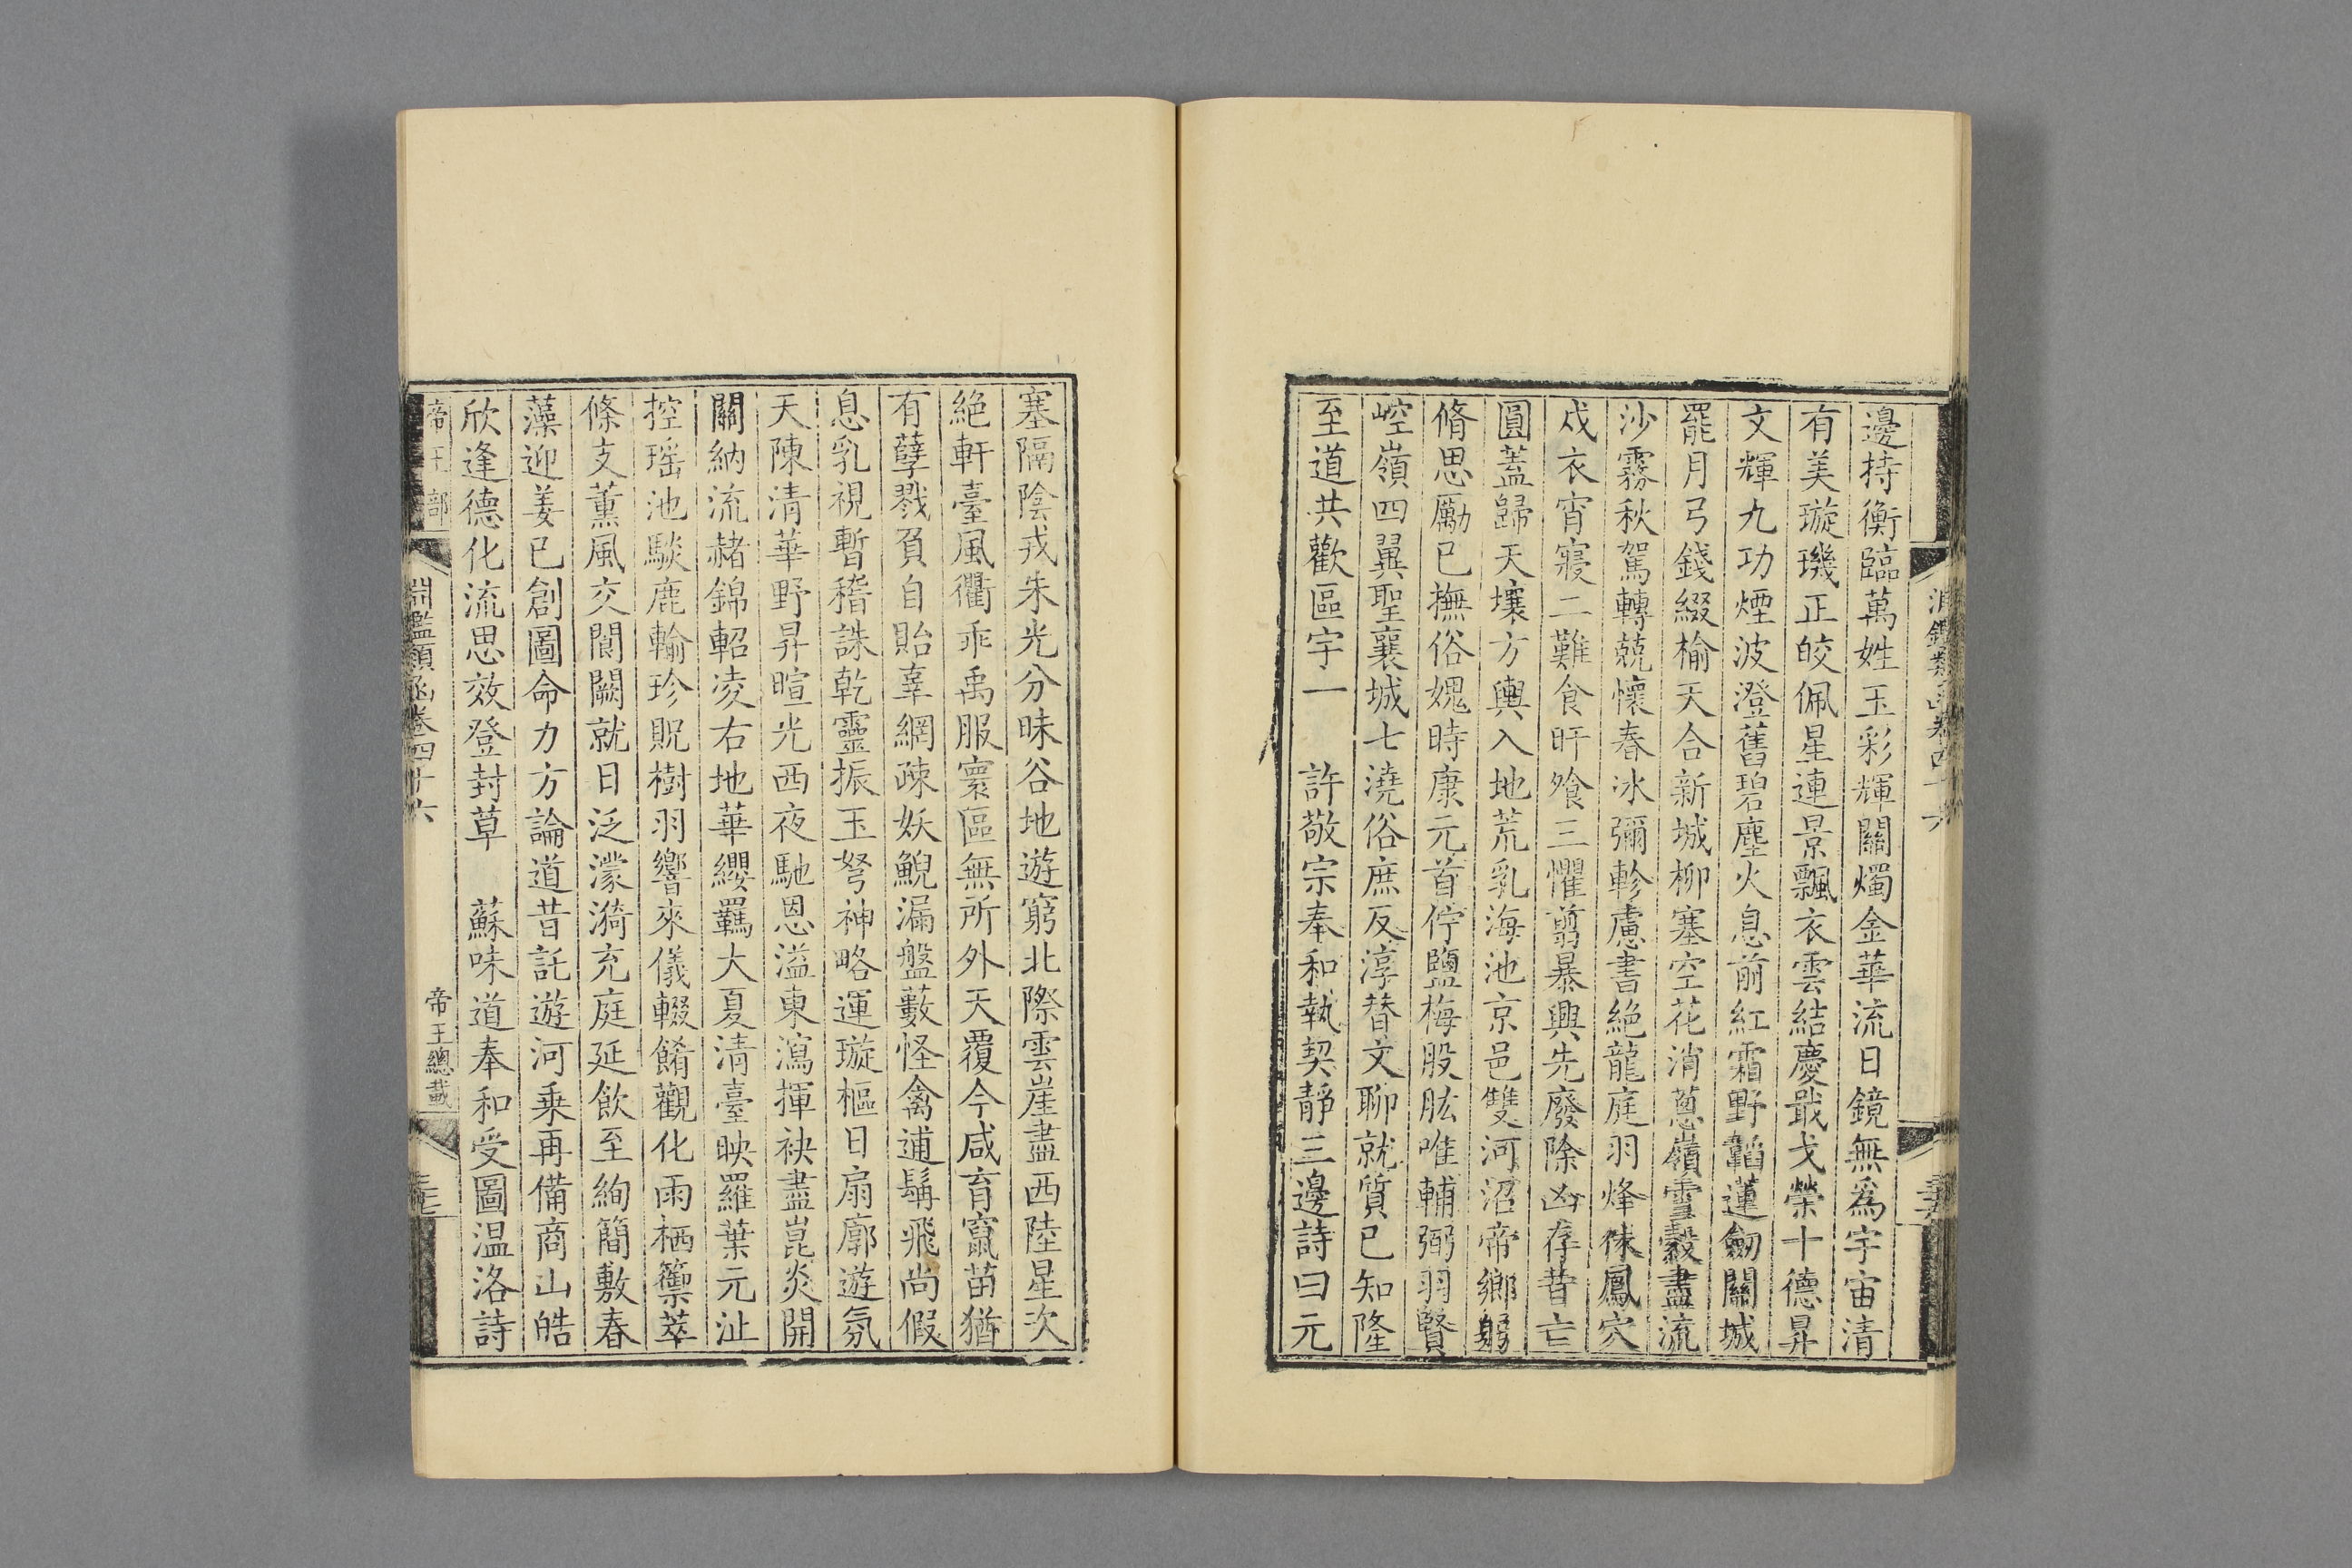 邊持衡臨萬姓玉彩輝關燭金華流日鏡無爲宇宙清
有美璇璣正皎佩星連景飄衣雲結慶戢戈榮十德昇
文輝九功煙波澄舊碧塵火息前紅霜野韜蓮劒關城
罷月弓錢綴榆天合新城柳塞空花消蔥嶺雪縠盡流
沙霧秋駕轉兢懷春冰彌軫慮書絕龍庭羽烽休鳳穴
戍衣宵寢二難食旰飧三懼翦暴興先廢除凶存昔亡
圓蓋歸天壤方輿入地荒乳海池京邑雙河沼帝鄉躬
脩思厲己撫俗媿時康元首佇鹽梅股肱唯輔弼羽賢
崆嶺四翼聖襄城七澆俗庶反淳替文聊就質已知隆
至道共歡區宇一 許敬宗奉和執契靜三邊詩曰元
塞隔陰戎朱光分昧谷地遊窮北際雲崖盡西陸星次
絕軒臺風衢乖禹服寰區無所外天覆今咸育竄苗猶
有孽戮負自貽辜網疎妖鯢漏盤藪怪禽逋鬅飛尚假
息乳視暫稽誅乾靈振玉弩神略運璇樞日扇廓遊氛
天陳清華野昇暄光西夜馳恩溢東瀉揮袂盡崑炎開
關納流赭錦軺凌右地華纓羈大夏清臺映羅葉元沚
控瑶池駮鹿輸珍貺樹羽響來儀輟餚觀化雨栖籞萃
條支薰風交閬闕就日泛濛漪充庭延飲至絢簡敷春
藻迎姜已創圖命力方論道昔託遊河乘再備商山皓
欣逢德化流思效登封草 蘇味道奉和受圖温洛詩
帝王部 淵鑑類函卷四十六 帝王總載 三七